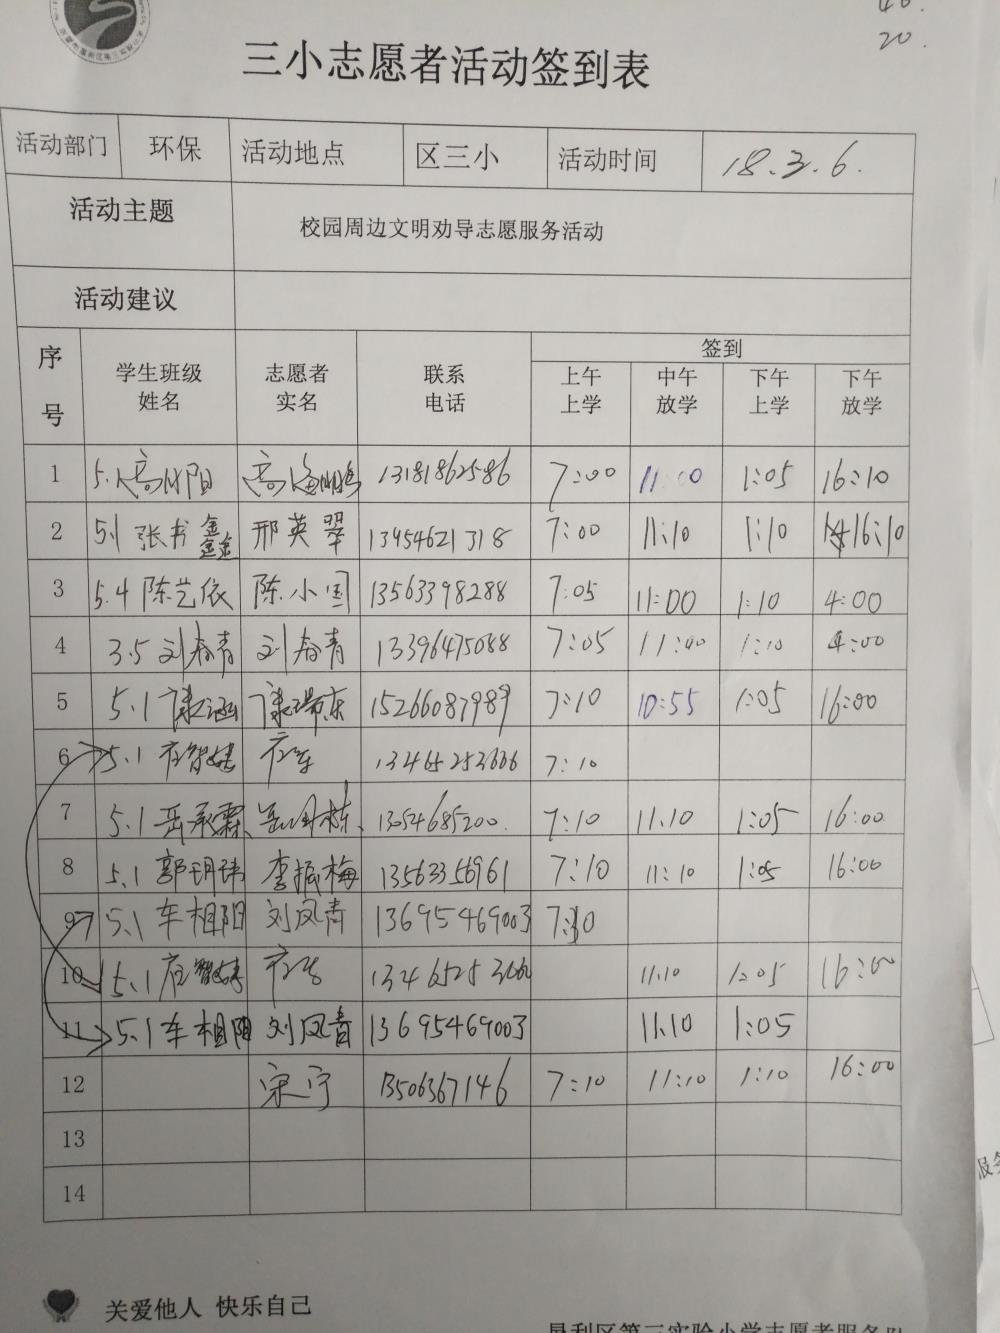 40.
20.
三小志愿者活动签到表
活动部门 环保 活动地点 区三小 活动时间 18.3.6.
活动主题 校园周边文明劝导志愿服务活动
活动建议
序号 学生班级姓名 志愿者实名 联系电话 签到
上午上学 中午放学 下午上学 下午放学
1 5. 高 阳 高海 13181862586 7:00 11:00 1:05 16:10
2 5.1 张书鑫 邢英翠 13454621318 7:00 11:10 1:10 16:10
3 5.4 陈艺依 陈小国 13563398288 7:05 11:00 1:10 4:00
4 3.5 刘春青 刘春青 13396475088 7:05 11:00 1:10 4:00
5 5.1 康涵 康瑞东 15266087989 7:10 10:55 1:05 16:00
6 5.1 智 13465253666 7:10
7 5.1 岳承霖 岳 栋 13054685200. 7:10 11.10 1:05 16:00
8 5.1 郭玥玮 李振梅 13563356961 7:10 11:10 1:05 16:00
9 5.1 车相阳 刘凤青 13695469003 7:10
10 5.1 智 1346525 3666 11.10 1:05 16:00
11 5.1 车相阳 刘凤青 13695469003 11.10 1:05
12 宋宁 13506367146 7:10 11:10 1:10 16:00
13
14
关爱他人 快乐自己
垦利区第三实验小学志愿者服务队
服务